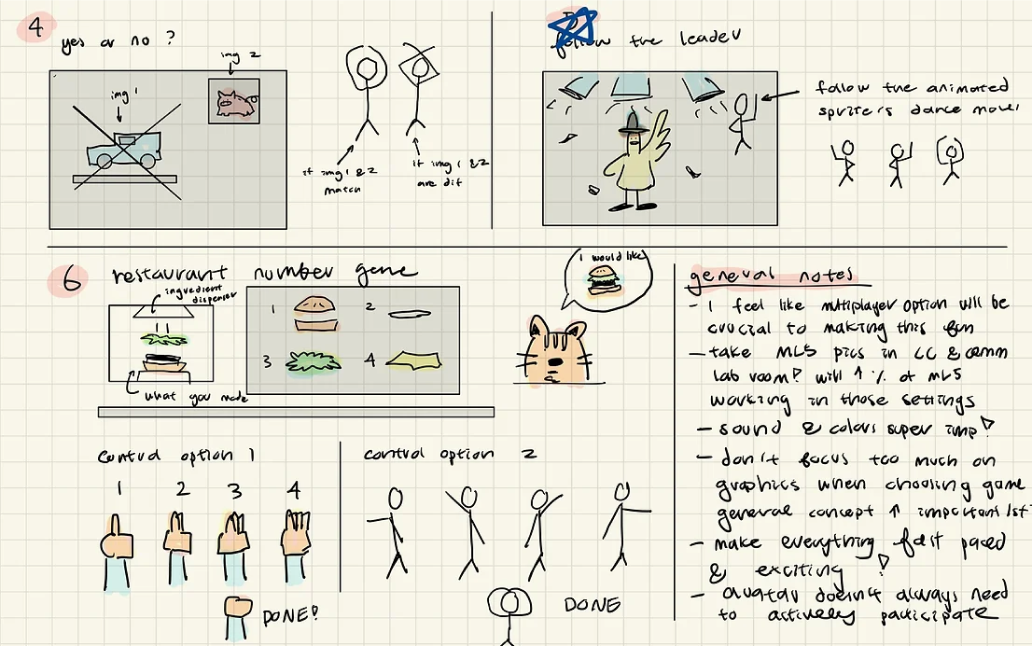 4
yes or no ?
img 1
img 2
if img 1 & 2
match
if img 1 & 2
are dif
follow the leader
follow the animated
sprite's dance moves
6
restaurant number game
ingredient
dispenser
what you made
1
2
3
4
I would like
control option 1
1 2 3 4
DONE!
control option 2
DONE
general notes
- I feel like multiplayer option will be
crucial to making this fun
- take MLS pics in LC & comm
lab room! will ↑ % of MLS
working in those settings
- sound & colors super imp!
- don't focus too much on
graphics when choosing game
general concept ↑ important 1st
- make everything fast paced
& exciting !
- avatar doesn't always need
to actively participate